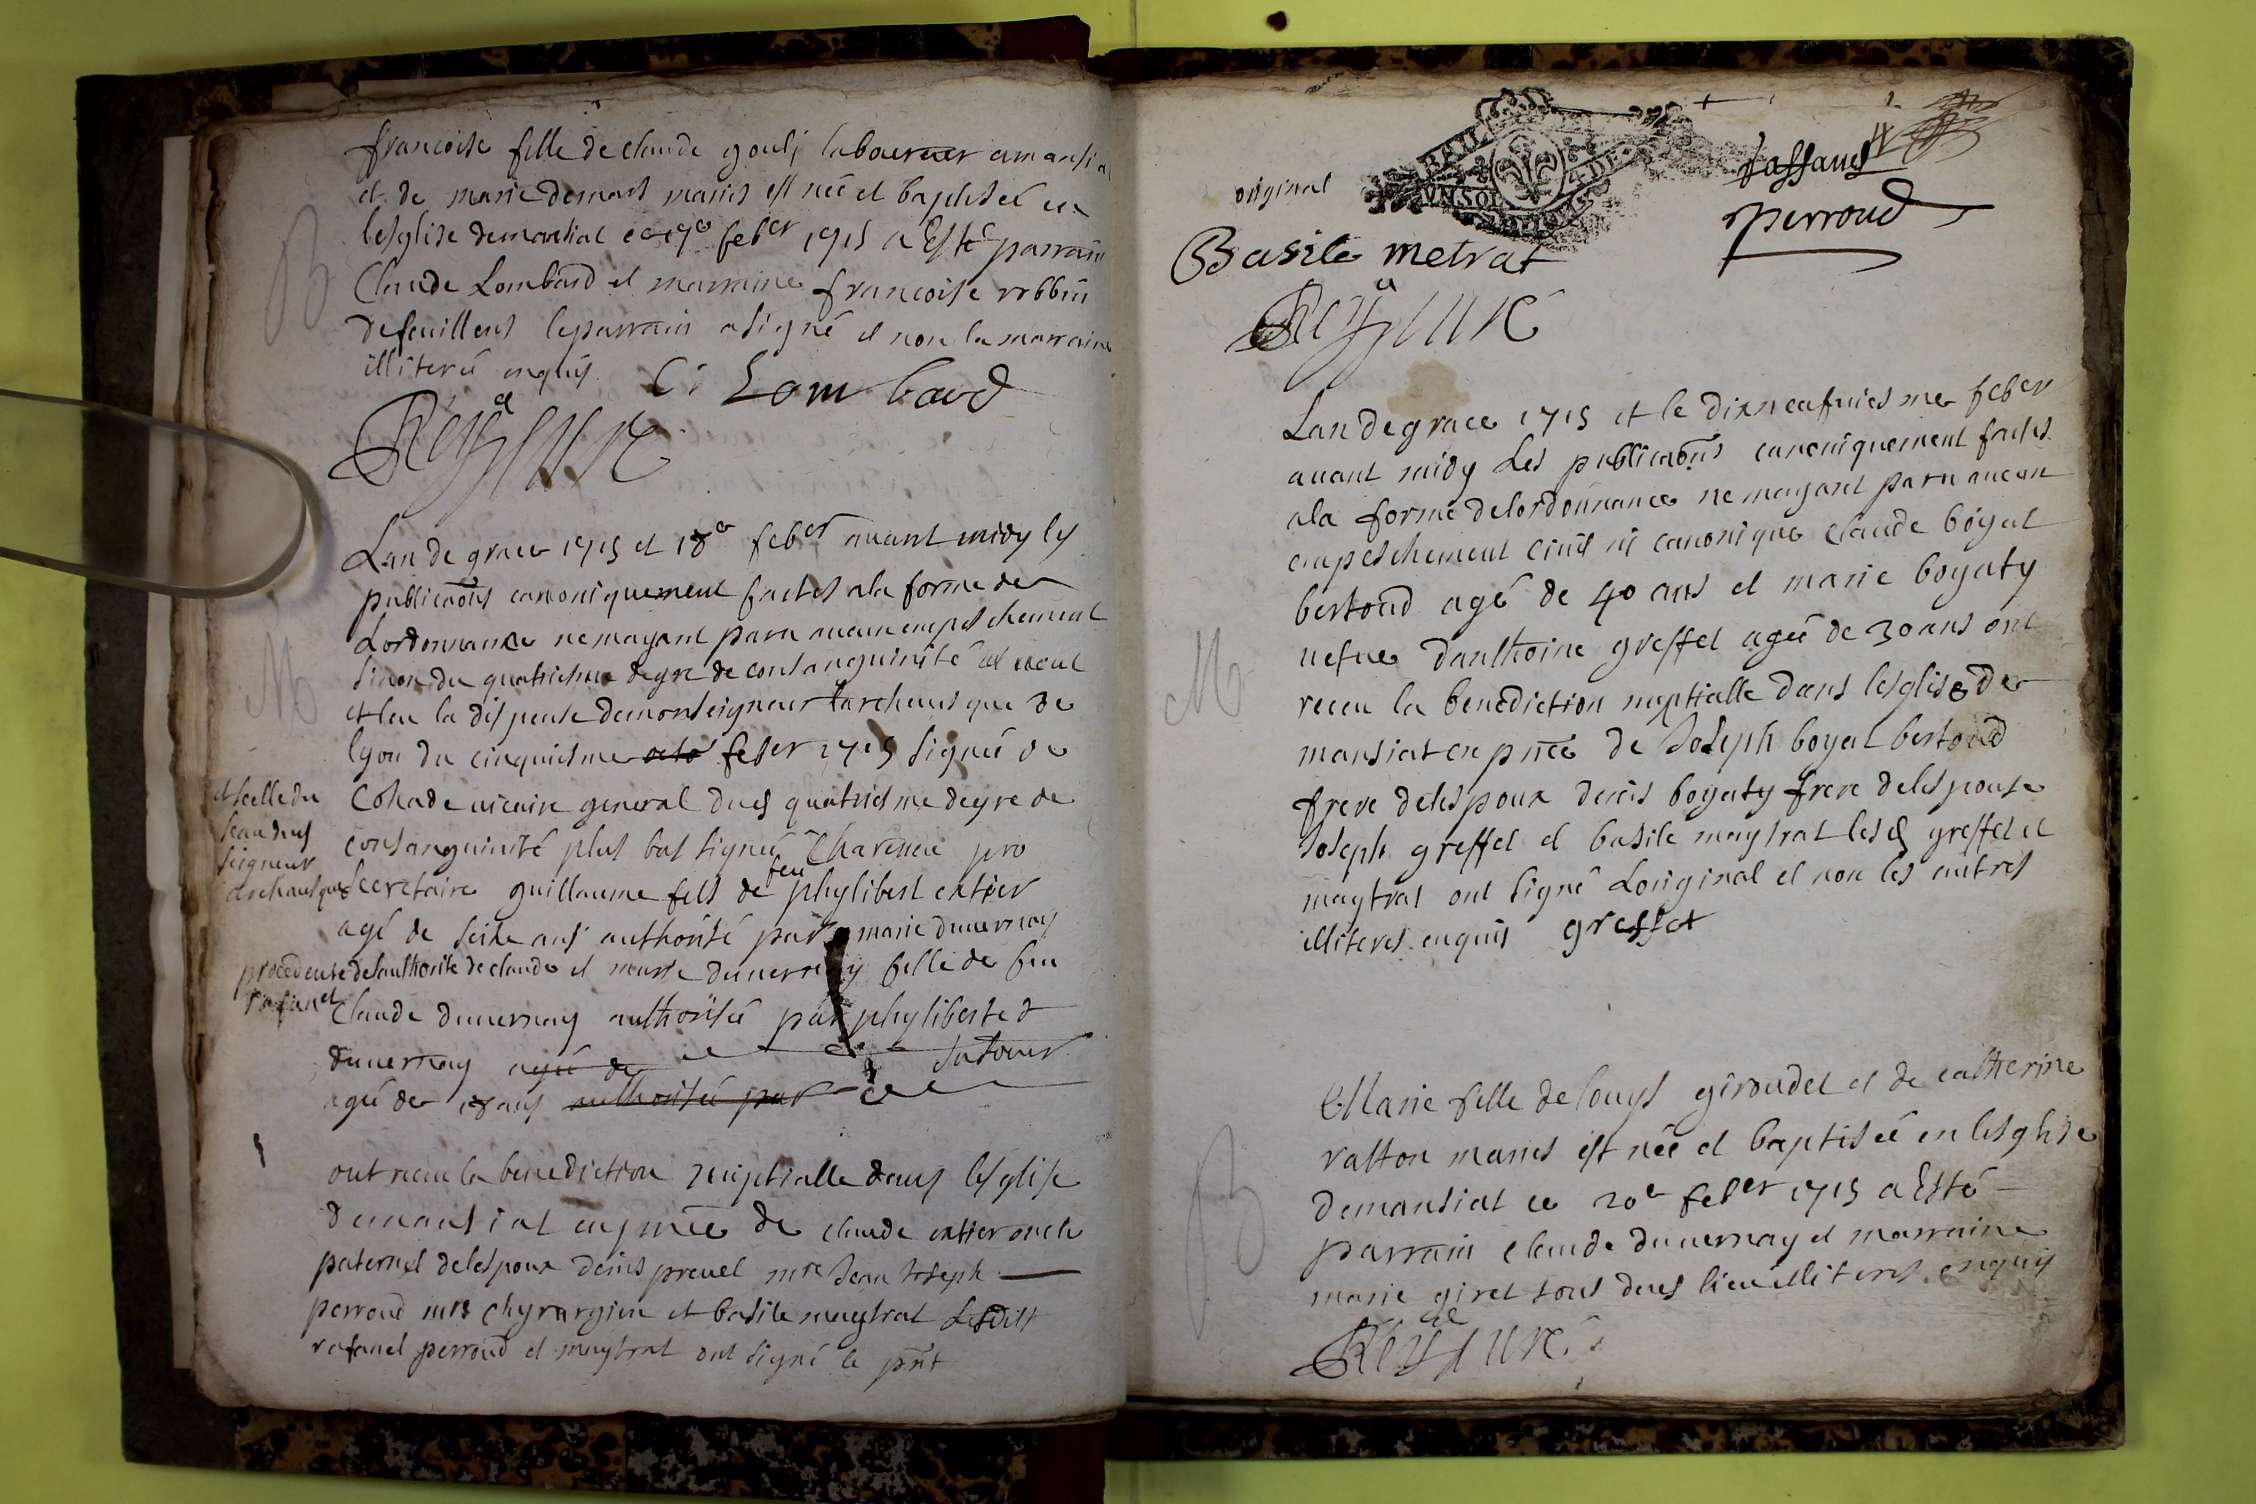 francoise fille de claude gouly laboureur a mansiat
et de marie demars maries est née et baptisée en
lesglise demansiat ce 17e feber 1715 a Esté parrain
Claude Lombard et marraine francoise robbin
defeuillens le parrain a signé et non la marraine
illiterée enquis C. Lombard
Rey Curé
B
Lan de grace 1715 et 18e feber avant midy les
publicaõns canoniquement faites ala forme de
Lordonnance ne mayant paru aucun empeschement
sinon du quatriesme degre de consanguinité
et leu la dispense demonseigneur Larchevesque de
lyon du cinquiesme feber 1715 signée de
Cohade vicaire general dud quatriesme degre de
consanguinité plus bas signée pro
secretaire guillaume fils de feu phylibert cattier
agé de seize ans authorisé par marie duvernay
et marie duvernay fille de feu
Claude duvernay authorisée par phylibert
duvernay agée de son tuteur
agée de 18 ans authorisée par
et scellé du
seau dud
seigneur
archevesque
procedente de lauthorité de claude
rafanel
M
ont receu la benediction nuptialle dans lesglise
demansiat en pñce de claude cattier oncle
paternel delespoux denis prevel mre Jean Joseph
perroud mre chyrurgien et basile maytrat Lesdits
rafanel perroud et maytrat ont signé le pñt
original
BAIL
UN SOL 4 DE
Perroud
Basile metrat
Rey Curé
Lan de grace 1715 et le dixneufviesme feber
avant midy Les publicaõns canoniquement faites
ala forme delordonnance ne mayant paru aucun
empeschement civil ni canonique Claude boyat
bertoud agé de 40 ans et marie boyaty
vefve danthoine greffet agée de 30 ans ont
receu la benediction nuptialle dans lesglise de
mansiat en pñce de Joseph boyat bertoud
frere delespoux denis boyaty frere delespouse
Joseph greffet et basile maytrat lesd greffet et
maytrat ont signé Loriginal et non les autres
illiteres enquis greffet
M
Marie fille de louys giroudet et de catherine
ratton maries est née et baptisée en lesglise
demansiat ce 20e feber 1715 a Esté
parrain claude duvernay et marraine
marie giret tous deux illiteres enquis
Rey Curé
B